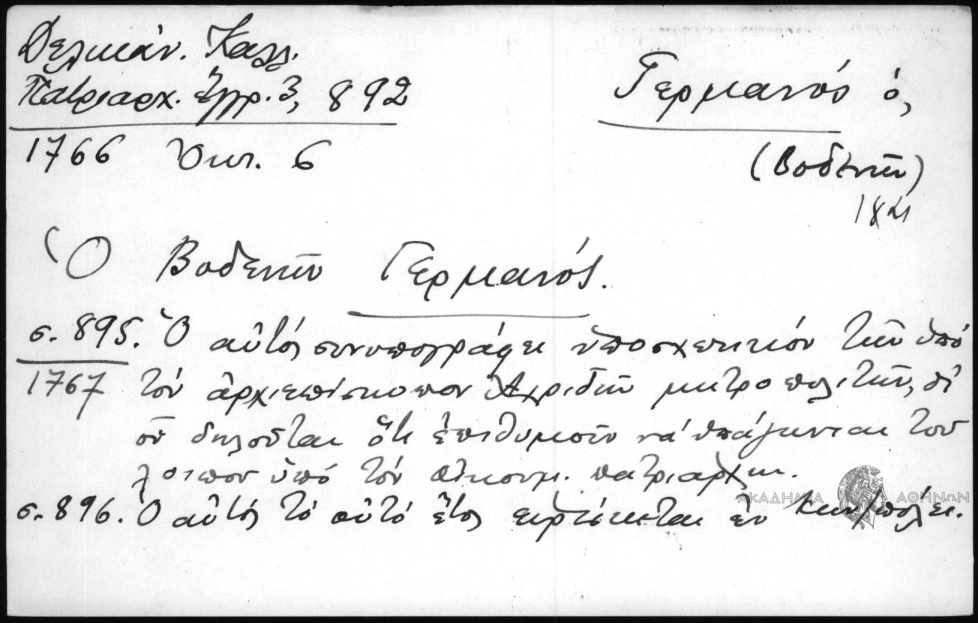 Δελικάν. Καλλ.
Πατριαρχ. Ἔγγρ. 3, 892
Γερμανός ὁ,
1766 Ὀκτ. 6
(Βοδενῶν)
Ὁ Βοδενῶν Γερμανός.
σ. 895. Ὁ αὐτός συνυπογράφει ὑποσχετικόν τῶν ὑπό
1767 τόν ἀρχιεπίσκοπον Ἀχριδῶν μητροπολιτῶν, δι'
οὗ δηλοῦται ὅτι ἐπιθυμοῦν νά ὑπάγωνται τοῦ
λοιποῦ ὑπό τόν οἰκουμ. πατριάρχην.
σ. 896. Ὁ αὐτός τό αὐτό ἔτος εὑρίσκεται ἐν Κων/πόλει.
ΑΚΑΔΗΜΙΑ ΑΘΗΝΩΝ